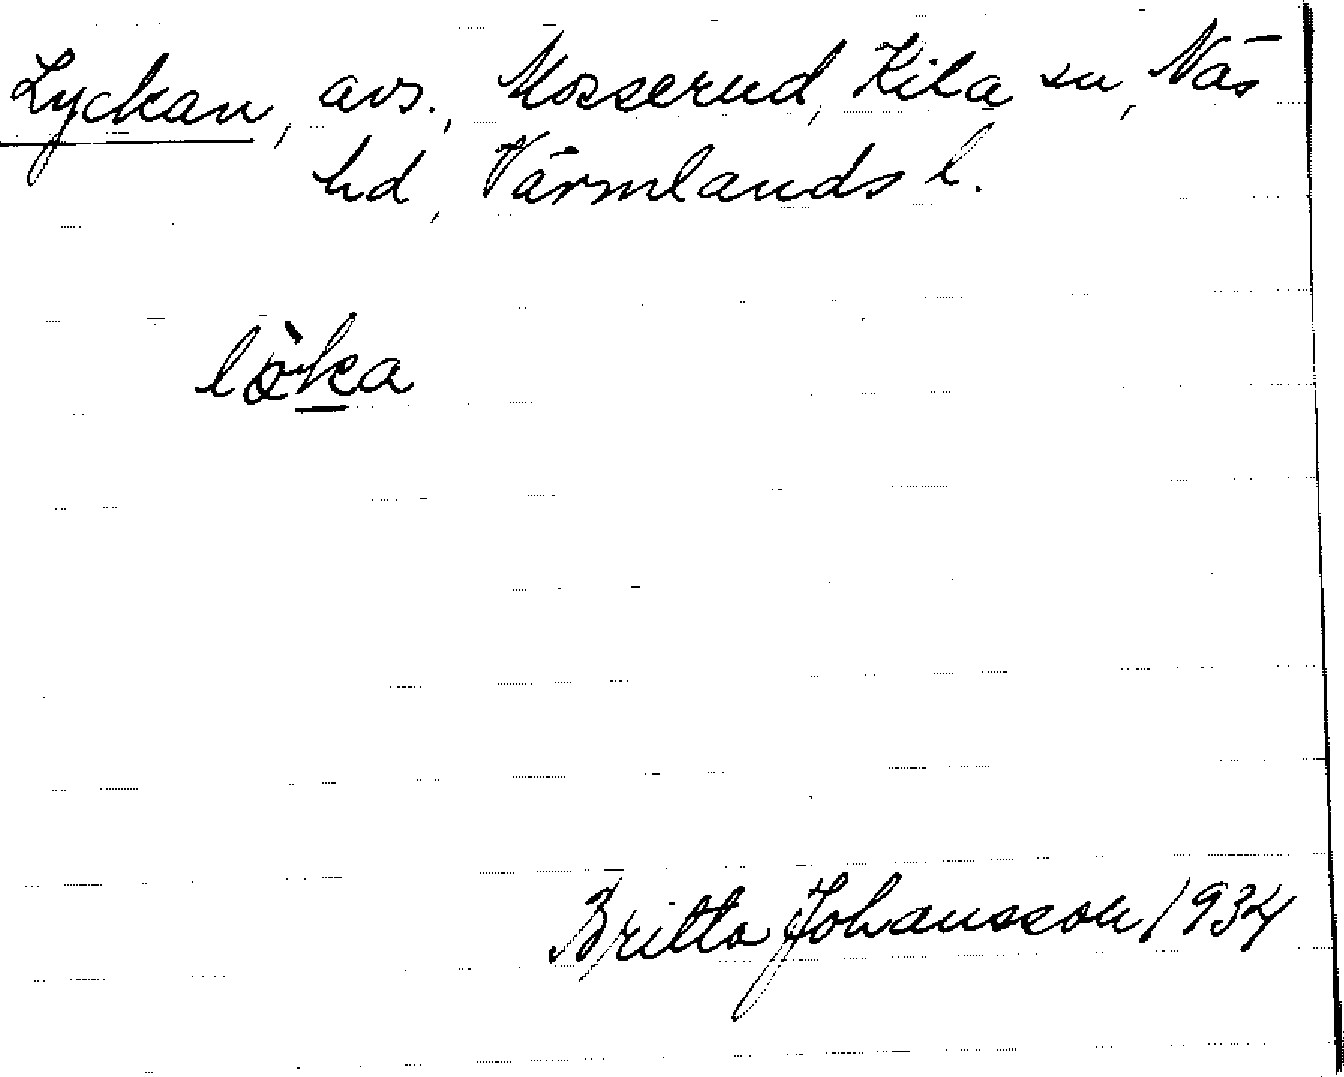 Lyckan, avs., Mosserud, Kila sn, Näs
hd, Värmlands l.
lö̀ka
Britta Johansson 1934